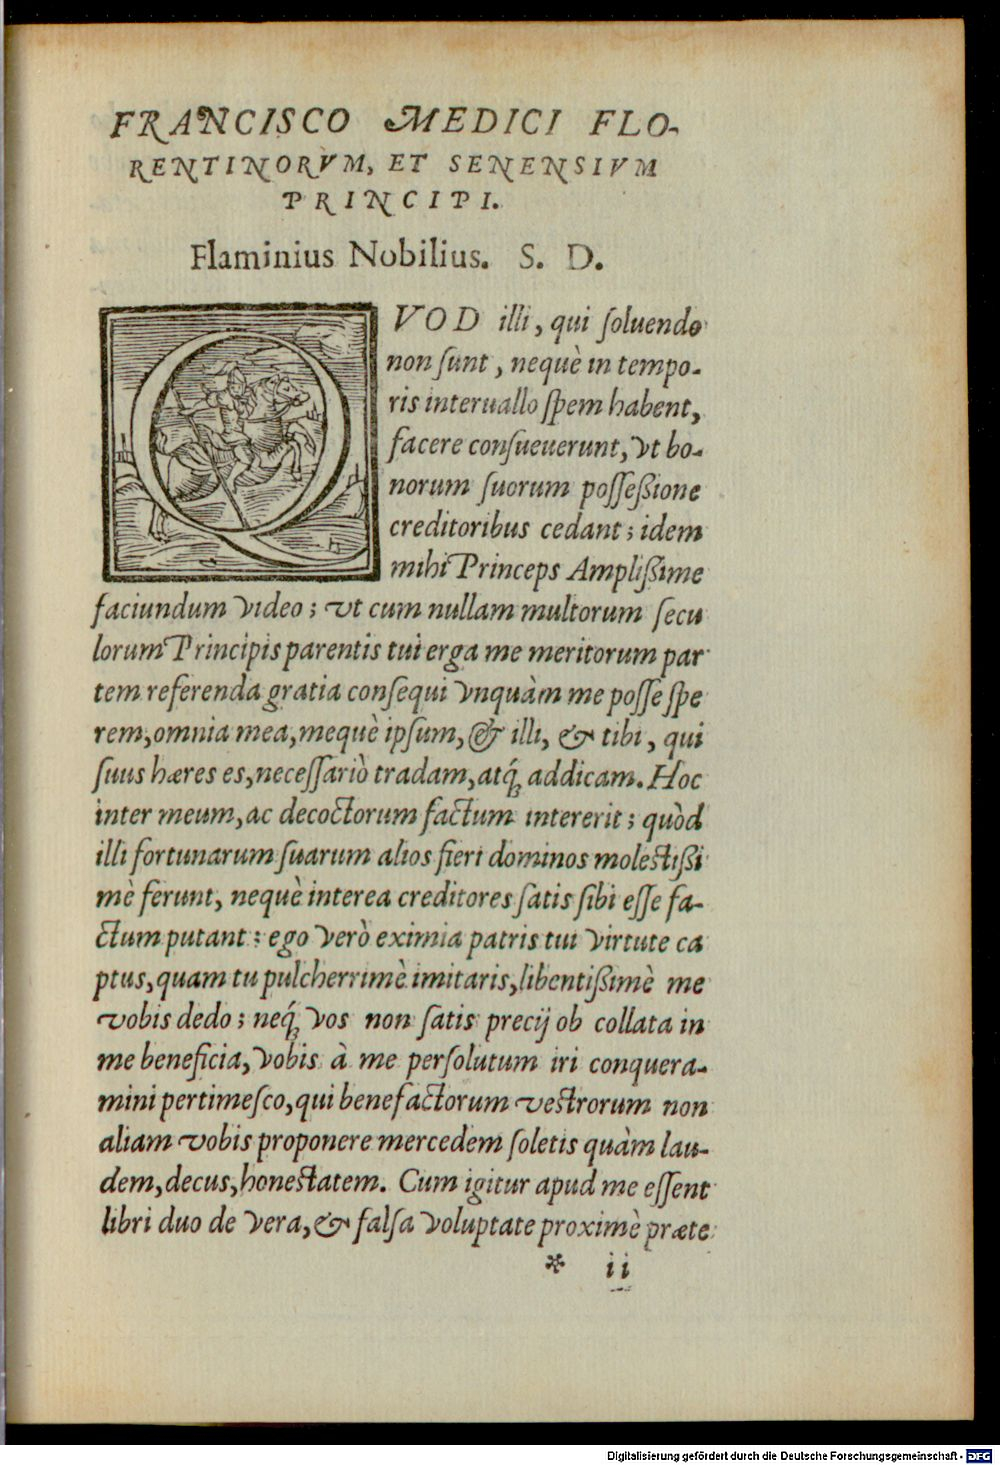 FRANCISCO MEDICI FLO-
RENTINORVM, ET SENENSIVM
PRINCIPI.
Flaminius Nobilius. S. D.
QVOD illi, qui ſoluendo
non ſunt, nequè in tempo-
ris interuallo ſpem habent,
facere conſueuerunt, vt bo-
norum ſuorum poſſeßione
creditoribus cedant; idem
mihi Princeps Amplißime
faciundum video; vt cum nullam multorum ſecu
lorum Principis parentis tui erga me meritorum par
tem referenda gratia conſequi vnquàm me poſſe ſpe
rem, omnia mea, mequè ipſum, & illi, & tibi, qui
ſuus hæres es, neceſſariò tradam, atq́ addicam. Hoc
inter meum, ac decoctorum factum intererit; quòd
illi fortunarum ſuarum alios fieri dominos moleſtißi
mè ferunt, nequè interea creditores ſatis ſibi eſſe fa-
ctum putant: ego verò eximia patris tui virtute ca
ptus, quam tu pulcherrimè imitaris, libentißimè me
vobis dedo; neq́ vos non ſatis precij ob collata in
me beneficia, vobis à me perſolutum iri conquera-
mini pertimeſco, qui benefactorum veſtrorum non
aliam vobis proponere mercedem ſoletis quàm lau-
dem, decus, honeſtatem. Cum igitur apud me eſſent
libri duo de vera, & falſa voluptate proximè præte
* ii
Digitalisierung gefördert durch die Deutsche Forschungsgemeinschaft - DFG